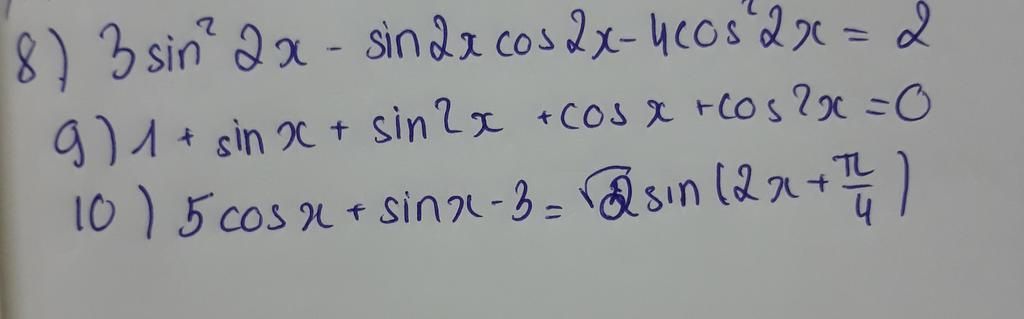 8) 3 sin² 2x - sin2x cos2x - 4cos² 2x = 2
9) 1 + sin x + sin2x + cos x + cos2x = 0
10) 5cosx + sinx - 3 = √2 sin (2x + π/4)